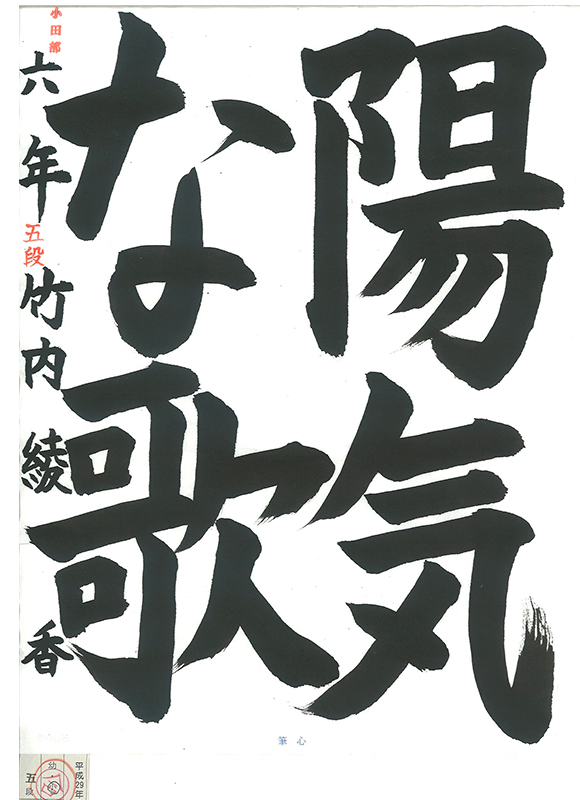 陽気
な歌
小田部
六年 五段 竹内綾香
筆心
平成29年
幼
小
五段